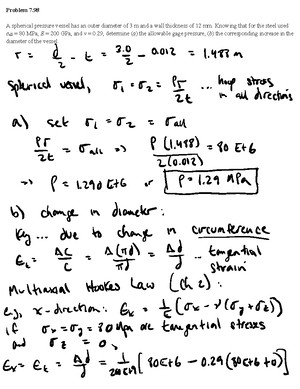 Problem 7.98
A spherical pressure vessel has an outer diameter of 3 m and a wall thickness of 12 mm. Knowing that for the steel used
σall = 80 MPa, E = 200 GPa, and ν = 0.29, determine (a) the allowable gage pressure, (b) the corresponding increase in the
diameter of the vessel.
r = d/2 - t = 3.0/2 - 0.012 = 1.488 m
Spherical vessel, σ1 = σ2 = Pr/2t ... hoop stress
in all directions
a) set σ1 = σ2 = σall
Pr/2t = σall => P(1.488)/2(0.012) = 80 E+6
=> P = 1.290 E+6 or P = 1.29 MPa
b) change in diameter:
Key ... due to change in circumference
εt = ΔC/C = Δ(πd)/πd = Δd/d ... tangential
strain
Multiaxial Hookes Law (ch 2):
E.g, x-direction: εx = 1/E (σx - ν(σy + σz))
if σx = σy = 80 Mpa are tangential stresses
and σz = 0,
εx = εt = Δd/d = 1/200E+9 [80E+6 - 0.29(80E+6 + 0)]